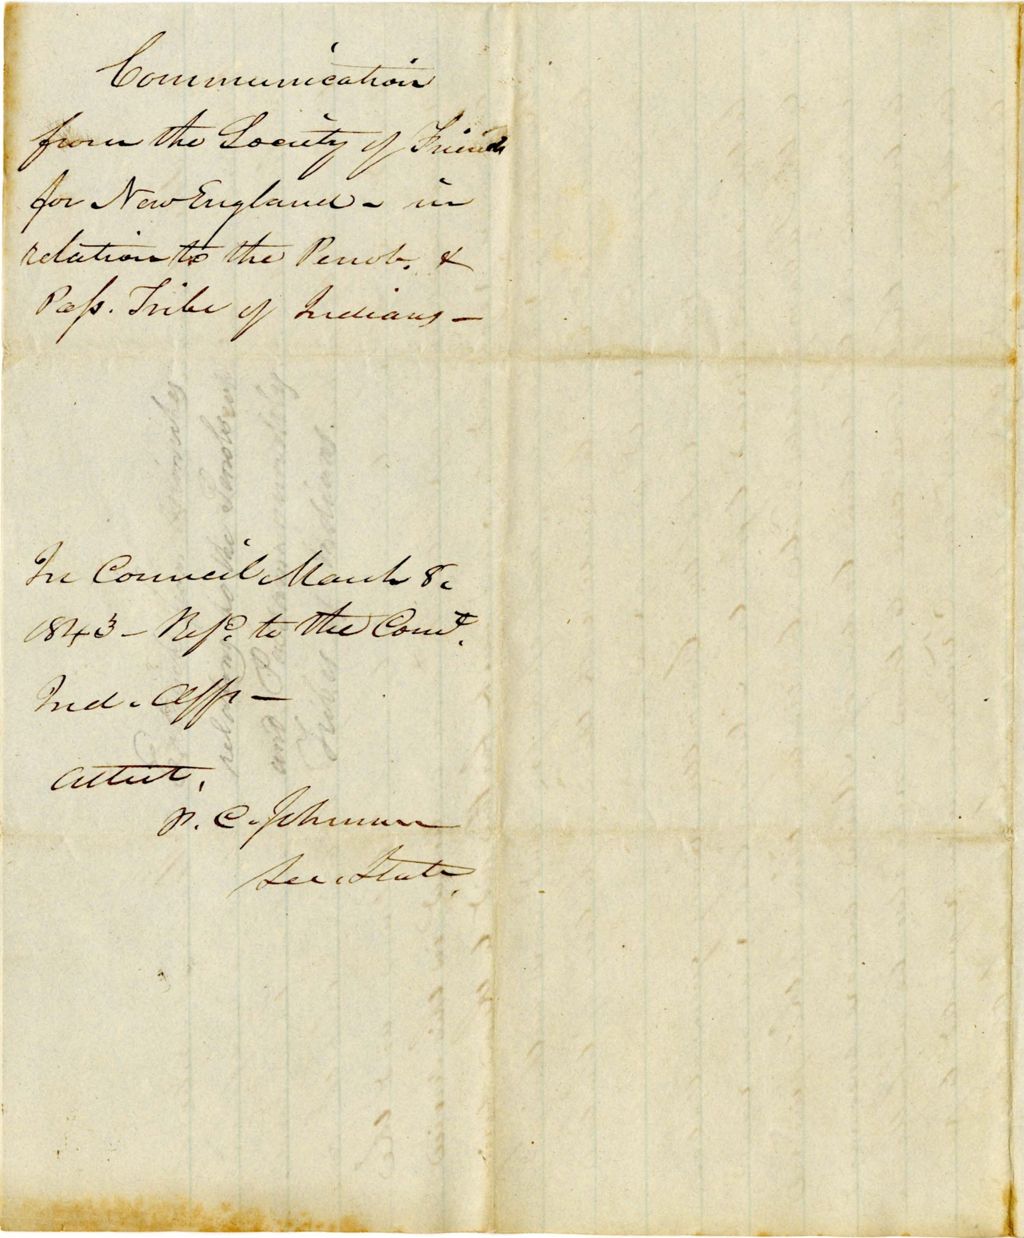 Communication
from the Society of Friends
for New England - in
relation to the Penob. &
Pass. Tribe of Indians -
In Council March 8.
1843 - Refd. to the Comt.
Ind. Affs -
Attest,
P. C. Johnson
Sec. State.
belonging to the Penobscot
and Passamaquoddy
Tribes Indians.